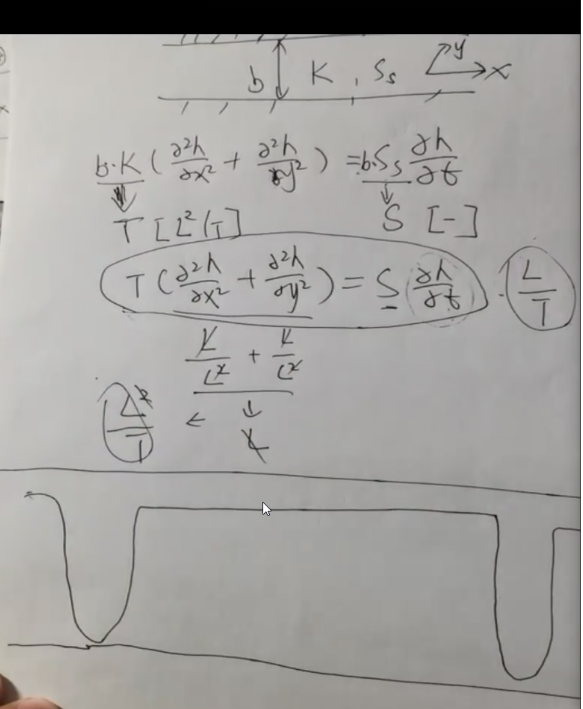 b K , Ss y x
b·K ( ∂²h/∂x² + ∂²h/∂y² ) = b·Ss ∂h/∂t
T [L²/T] S [-]
T ( ∂²h/∂x² + ∂²h/∂y² ) = S ∂h/∂t · L/T
L/L² + L/L²
L²/T ← ↓
L